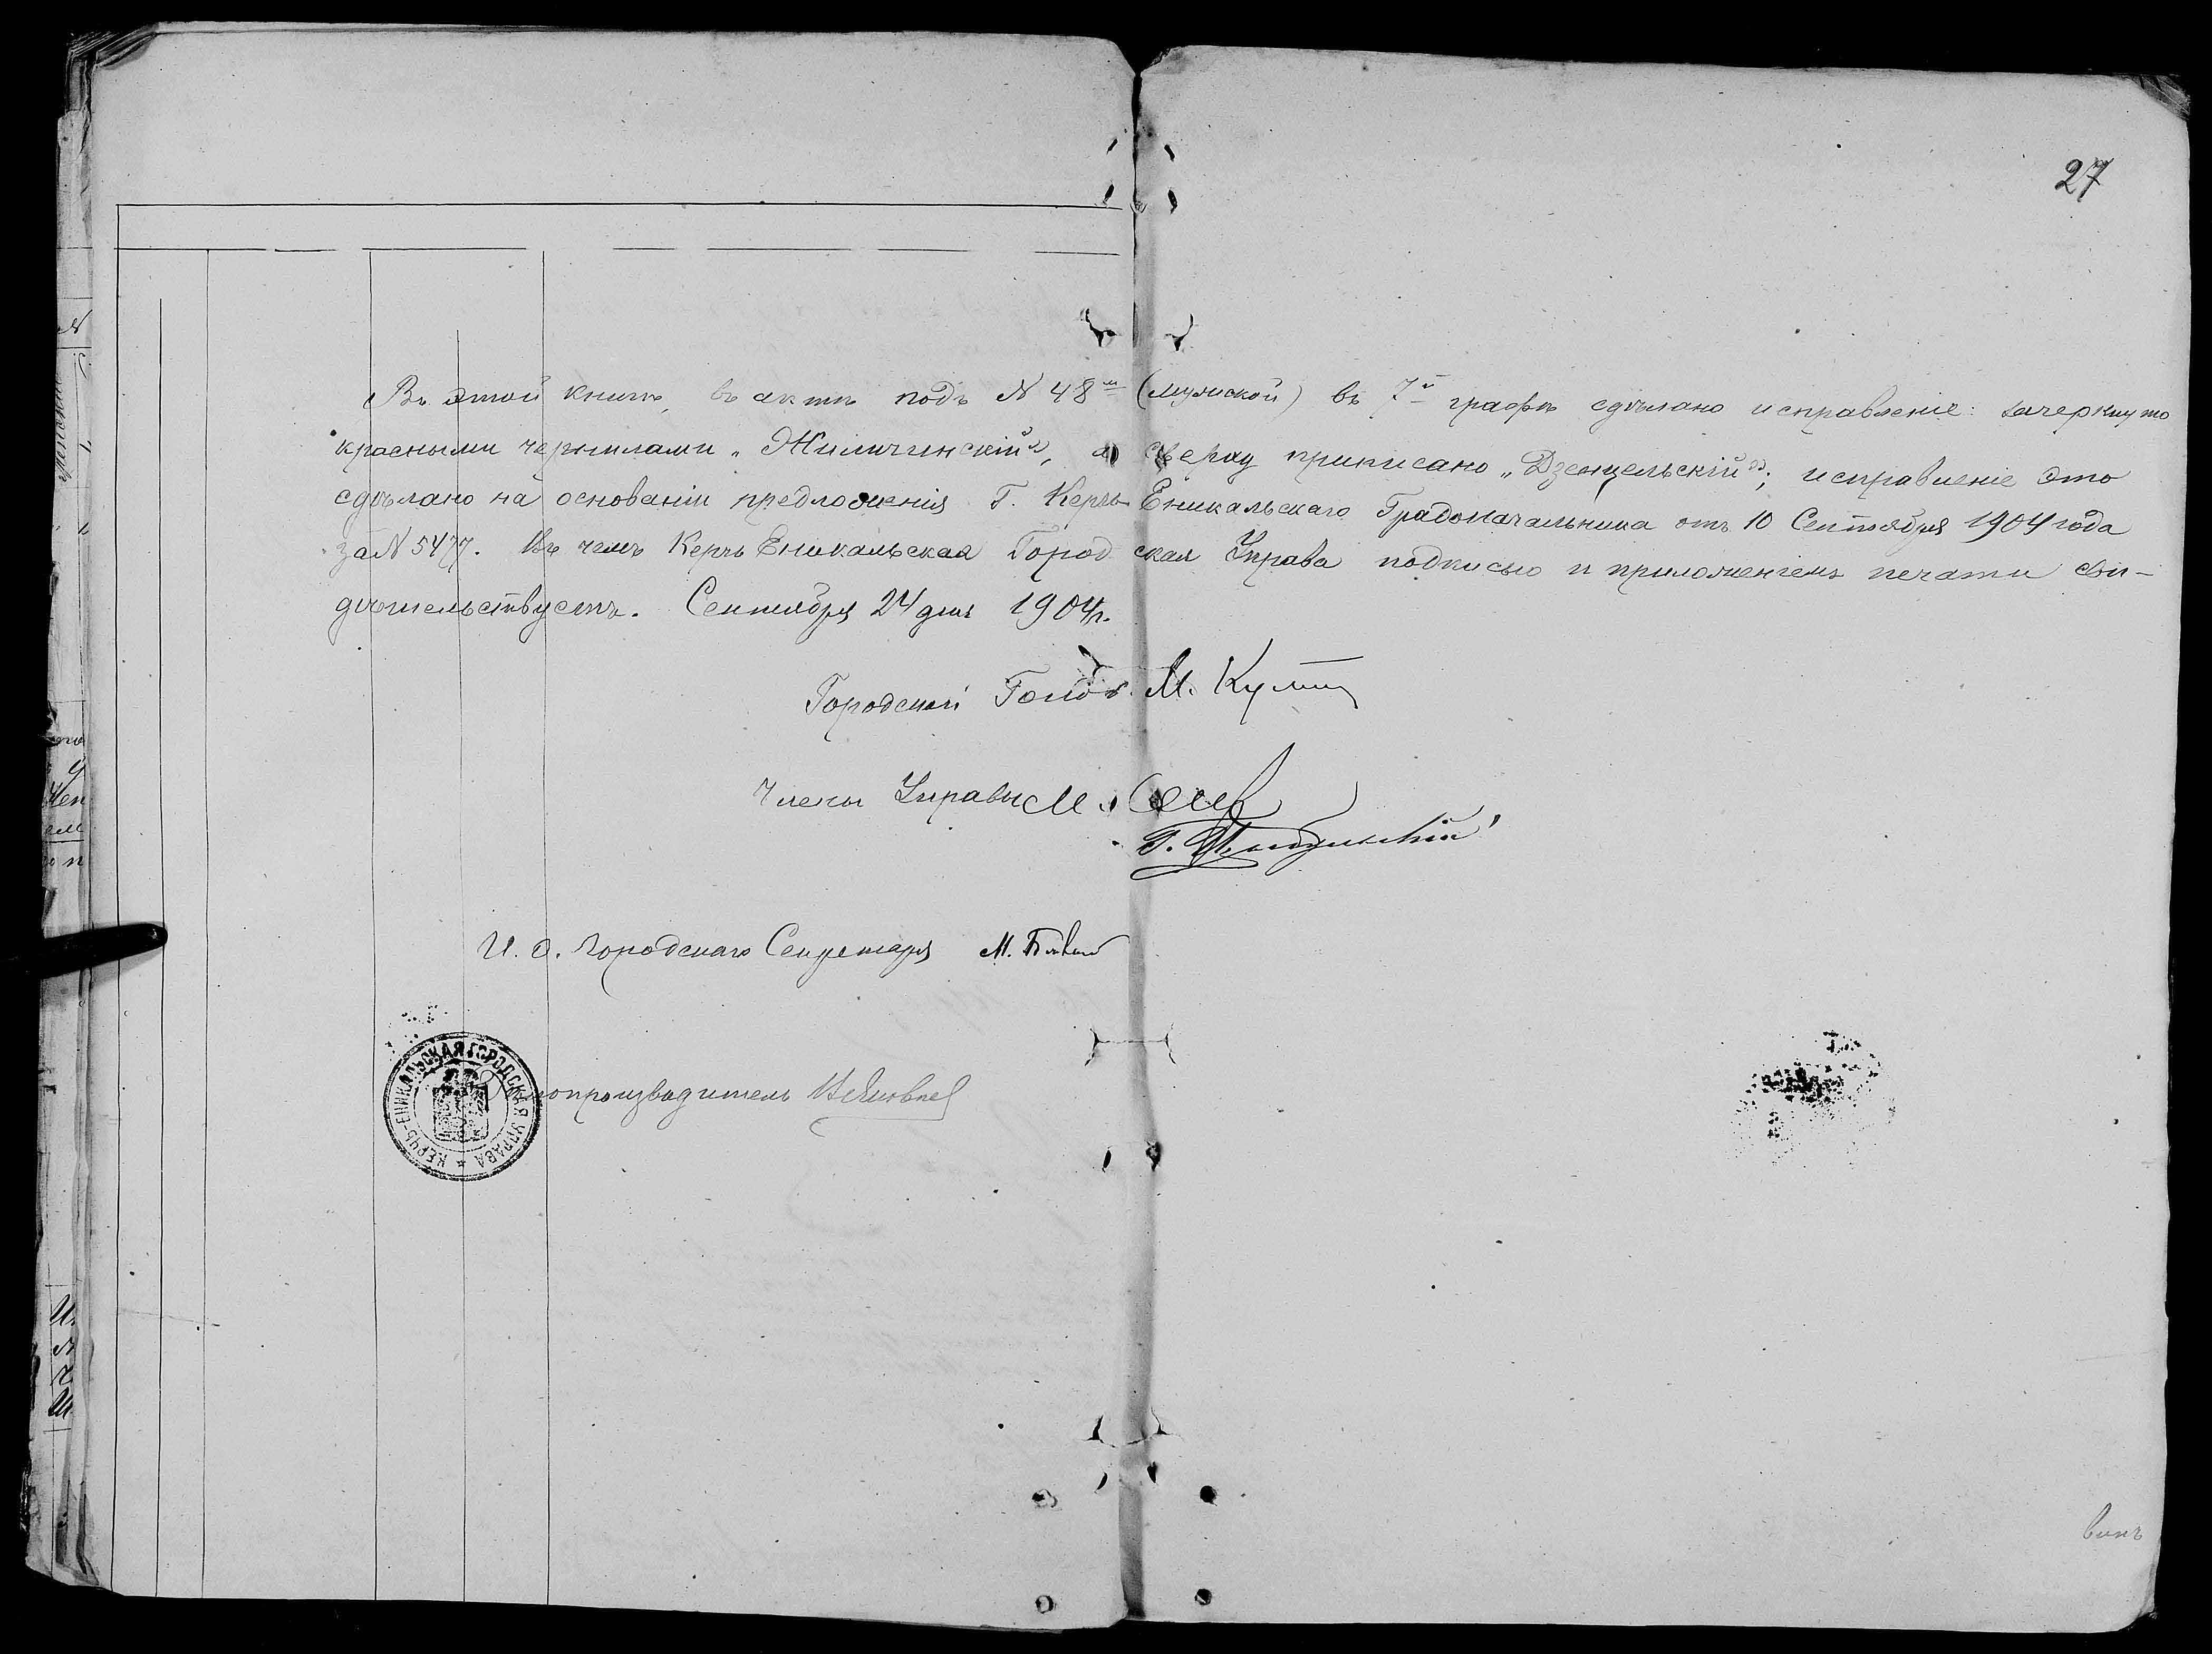 27
Въ этой книгѣ, въ актѣ подъ № 48м (мужской) въ 7й графѣ сдѣлано исправленіе: зачеркнуто
красными чернилами „Жиличинскій“, а сверху приписано „Дзенцельскій“; исправленіе это
сдѣлано на основаніи предложенія Г. Керчь-Еникальскаго Градоначальника отъ 10 Сентября 1904 года
за № 5477. Въ чемъ Керчь-Еникальская Городская Управа подписью и приложеніемъ печати сви-
дѣтельствуетъ. Сентября 24 дня 1904 г.
Городской Голова М.
Члены Управы М.
Г.
И. д. Городскаго Секретаря М.
Дѣлопроизводитель
КЕРЧЬ-ЕНИКАЛЬСКАЯ ГОРОДСКАЯ УПРАВА